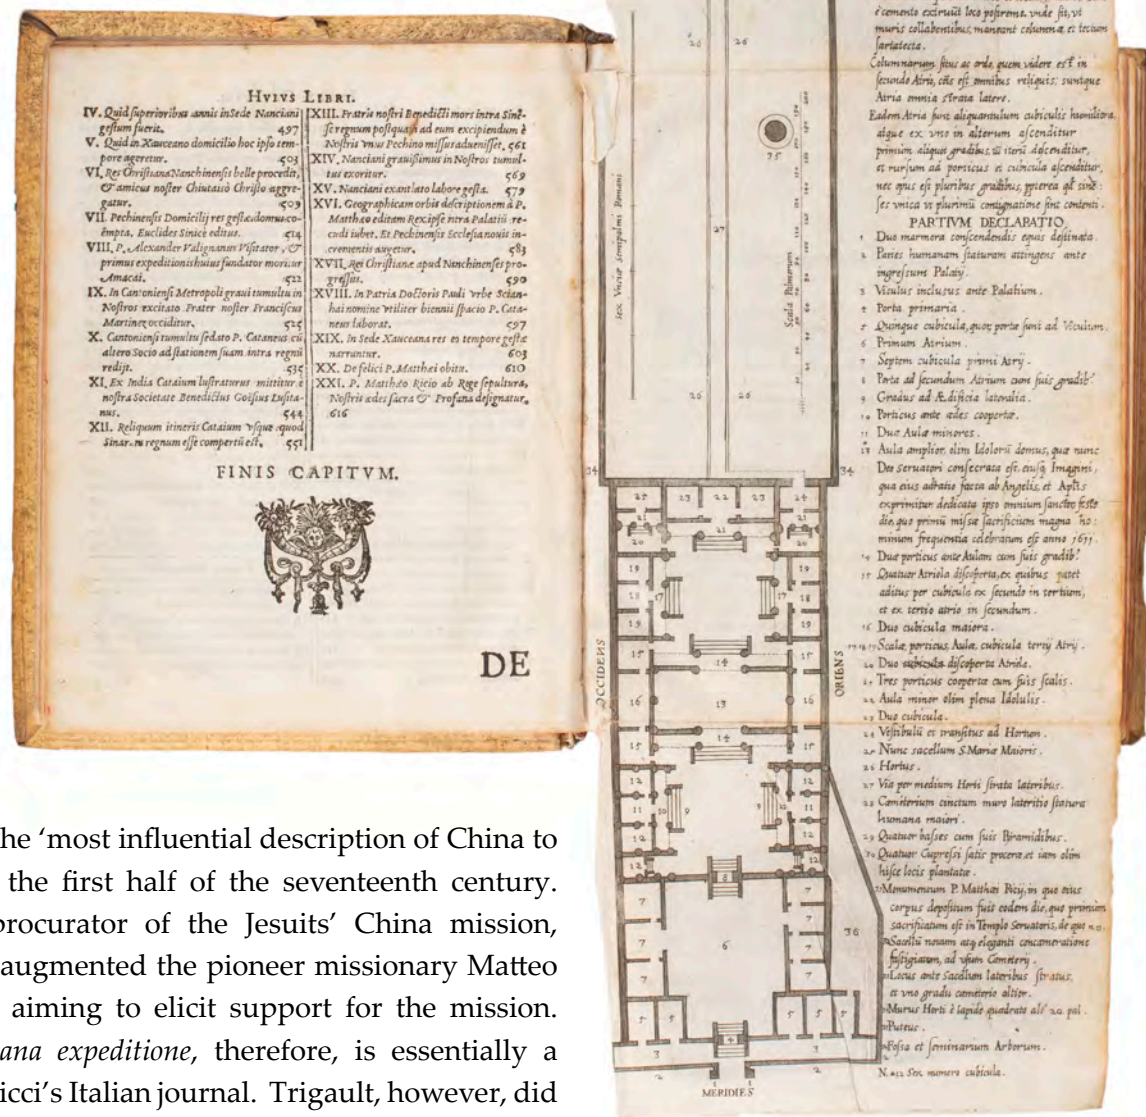 HVIVS LIBRI.
IV. Quid superioribus annis in Sede Nanciani
gestum fuerit. 497
V. Quid in Xauceano domicilio hoc ipso tem-
pore ageretur. 503
VI. Res Christiana Nanchinensis belle procedit,
& amicus noster Chiutaisò Christo aggre-
gatur. 509
VII. Pechinensis Domicilij res gestæ, domus co-
ëmpta, Euclides Sinicè editus. 514
VIII. P. Alexander Valignanus Visitator, &
primus expeditionis huius fundator moritur
Amacai. 522
IX. In Cantoniensi Metropoli graui tumultu in
Nostros excitato Frater noster Franciscus
Martinez occiditur. 525
X. Cantoniensi tumultu sedato P. Cataneus cū
altero Socio ad stationem suam intra regnū
redijt. 535
XI. Ex India Cataium lustraturus mittitur è
nostra Societate Benedictus Goësius Lusita-
nus. 544
XII. Reliquum itineris Cataium vsque quod
Sinarum regnum esse compertū est. 551
XIII. Fratris nostri Benedicti mors intra Sinē-
se regnum postquam ad eum excipiendum è
Nostris vnus Pechino missus aduenisset. 561
XIV. Nanciani grauissimus in Nostros tumul-
tus exoritur. 569
XV. Nanciani exantlato labore gesta. 579
XVI. Geographicam orbis descriptionem à P.
Matthæo editam Rex ipse intra Palatiū re-
cudi iubet. Et Pechinensis Ecclesia nouis in-
crementis augetur. 583
XVII. Rei Christianæ apud Nanchinenses pro-
gressus. 590
XVIII. In Patria Doctoris Pauli vrbe Scian-
hai nomine vtiliter biennii spacio P. Cata-
neus laborat. 597
XIX. In Sede Xauceana res eo tempore gestæ
narrantur. 603
XX. De felici P. Matthæi obitu. 610
XXI. P. Matthæo Ricio ab Rege sepultura,
Nostris ædes sacra & Profana designatur.
616
FINIS CAPITVM.
DE
è cemento extruūt loco postremo, vnde fit, vt
muris collabentibus, maneant columnæ, et tectum
sartatecta.
Columnarum situs ac ordo, quem videre est in
secundo Atrio, cōis est omnibus reliquis; suntque
Atria omnia strata latere.
Eadem Atria sunt aliquantulum cubiculis humiliora,
atque ex vno in alterum ascenditur
primum aliquot gradibus, tū iterū descenditur,
et rursum ad porticus et cubicula ascenditur,
nec opus est pluribus gradibus, ppterea qđ Sinē:
ses vnica vt plurimū contignatione sint contenti.
PARTIVM DECLARATIO
1 Duo marmora conscendendis equis destinata.
2 Paries humanam staturam attingens ante
ingressum Palatij.
3 Viculus inclusus ante Palatium.
4 Porta primaria.
5 Quinque cubicula, quor portæ sunt ad Viculum.
6 Primum Atrium.
7 Septem cubicula primi Atrij.
8 Porta ad secundum Atrium cum suis gradib?
9 Gradus ad Ædificia lateralia.
10 Porticus ante ædes coopertæ.
11 Duæ Aulæ minores.
13 Aula amplior, olim Idolorū domus, quæ nunc
Deo Seruatori consecrata est, eiusq Imagini,
qua eius adoratio facta ab Angelis, et Aplis
exprimitur dedicata ipso omnium sanctor. festo
die, quo primū missæ sacrificium magna ho:
minum frequentia celebratum est anno 1611.
14 Duæ porticus ante Aulam cum suis gradib?
15 Quatuor Atriola discoperta, ex quibus patet
aditus per cubicula ex secundo in tertium,
et ex tertio atrio in secundum.
16 Duo cubicula maiora.
17 18 19 Scalæ, porticus, Aulæ, cubicula tertij Atrij.
20 Duo cubicula discoperta Atriola.
21 Tres porticus coopertæ cum suis scalis.
22 Aula minor olim plena Idolulis.
23 Duo cubicula.
24 Vestibulū et transitus ad Hortum.
25 Nunc sacellum S. Mariæ Maioris.
26 Hortus.
27 Via per medium Horti strata lateribus.
28 Cæmiterium cinctum muro lateritio statura
humana maiori.
29 Quatuor basses cum suis Piramidibus.
30 Quatuor Cupressi satis proceræ et iam olim
hisce locis plantatæ.
31 Monumentum P. Matthæi Ricij, in quo eius
corpus depositum fuit eodem die, quo primum
sacrificatum est in Templo Seruatoris, de quo n. 13.
Sacellū nouum atq eleganti concameratione
fastigiatum, ad vsum Cæmiterij.
Locus ante Sacellum lateribus stratus,
et vno gradu cæmiterio altior.
Murus Horti è lapide quadrato alt? 20. pal.
Puteus.
Fossa et seminarium Arborum.
N. 12 Sex numero cubicula.
26 26
35
27
Sex Vnciæ Semipalmi Romani
Scala Palmorum
26 26
34 34
25 23 22 23 24
21 21 21
20 20
19 19
18 17 17 18
19 19
15 14 15
16 13 16
15 14 15
12 12
11 10 9 9 10 11
12 12
12 8 12
7 7
7 6 7
7 7 36
5 5 5 5 5
3 4 3
2 1 1 2
OCCIDENS
ORIENS
MERIDIES
he ‘most influential description of China to
the first half of the seventeenth century.
procurator of the Jesuits’ China mission,
augmented the pioneer missionary Matteo
aiming to elicit support for the mission.
ana expeditione, therefore, is essentially a
icci’s Italian journal. Trigault, however, did